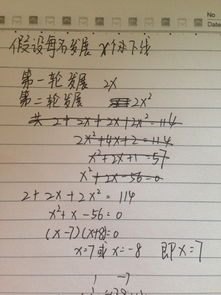 No
Da
假设每名发展 x 个下线
第一轮发展 2x
第二轮发展 2x²
2+2x+2x+2x²=114
2x²+4x+2=114
x²+2x+1=57
x²+2x-56=0
2+2x+2x²=114
x²+x-56=0
(x-7)(x+8)=0
x=7或x=-8 即x=7
1 -7